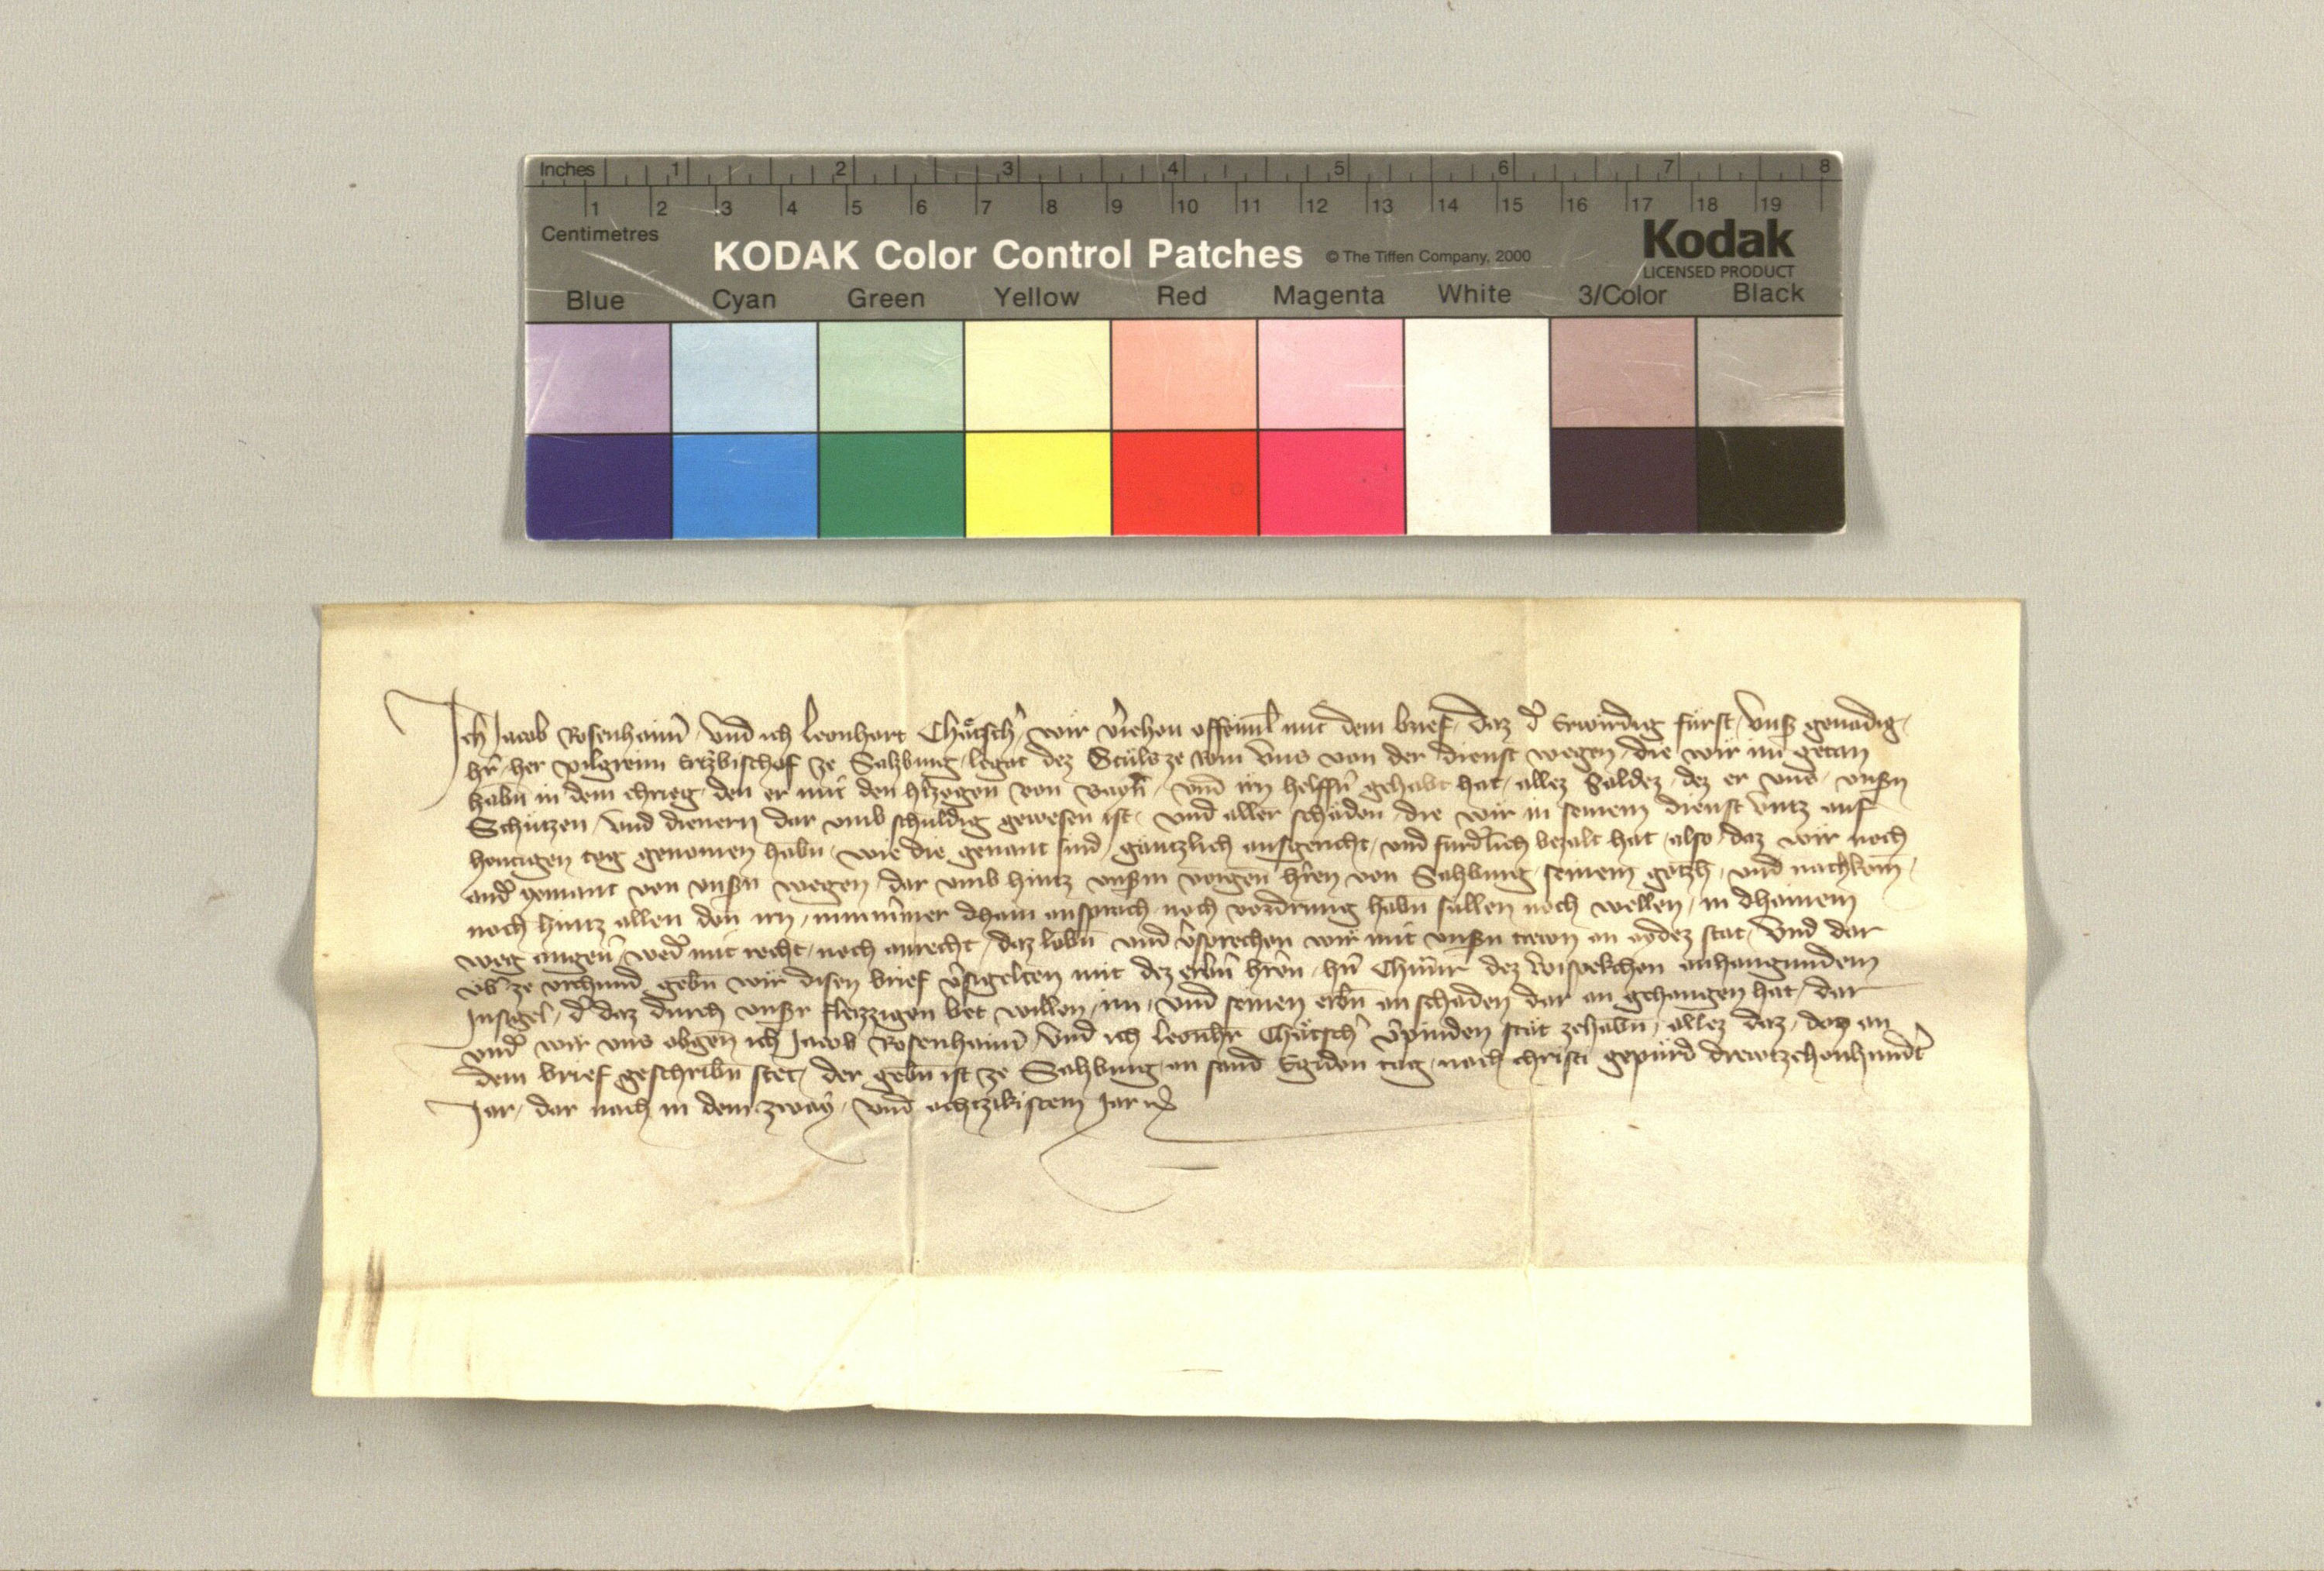 Inches 1 2 3 4 5 6 7 8
1 2 3 4 5 6 7 8 9 10 11 12 13 14 15 16 17 18 19
Centimetres
KODAK Color Control Patches © The Tiffen Company, 2000 Kodak
LICENSED PRODUCT
Blue Cyan Green Yellow Red Magenta White 3/Color Black
Ich Jacob Rosenhaim̂ und ich Leonhart Chätsch̉ wir v̉iehen offeinl̄ mit dem brief, daz d̉ Erwirdig fürst, unß genadig,
hr̄, her pilgreim Ertzbischof ze Saltzburg, legat dez Stüls ze Rom uns von der dienst wegen, die wir im getan
habn̄ in dem chrieg, den er mit den hr̄tzogen von Bayrn̄, und irn helffn̄ gehabt hat, allez Soldez, dez er uns, unßn
Schützen, und dienern dar umb schuldig gewesen ist, und aller schäden, die wir in seinem dienst untz auf
heutigen tag genomen habn̄, wie die genant sind, gäntzlich ausgericht, und furdl̉ich bezalt hat, also, daz wir noch
and̉ yemant von unßn wegen, dar umb hintz unßm vorgen̄ hr̄en von Saltzburg, seinem gotzh̄, und nachkōm,
noch hintz allen den irn, nimmm̄er dhain ansprach noch vordrung habn̄ süllen noch wellen, in dhainem
weg angeu̔, wed̉ mit recht, noch anrecht, daz lobn̄ und v̉sprechen wir mit unßn trewn an aydez stat, Und dar
üb̉ ze urchund gebn̄ wir disen brief v̉sigelten mit dez erbn̄ hr̄n, hn̄ Chunr̄ dez anhangundem
Insigel, d̉ daz durch unßr fleizzigen bet willen, im, und seinen erbn̄ an schaden dar an gehangen hat, dar
und̉ wir uns obgen̄ ich Jacob Rosenhaim̂ und ich Leonhr̄ Chätsch̉ v̉pinden stät zehabn̄, allez daz, daz an
dem brief geschribn̄ stet, der gebn̄ ist ze Saltzburg, an sand Egiden tag, nach christi gepürd drewtzehenhundt̉
Jar, dar nach in dem zway, und achtzikistem Jar